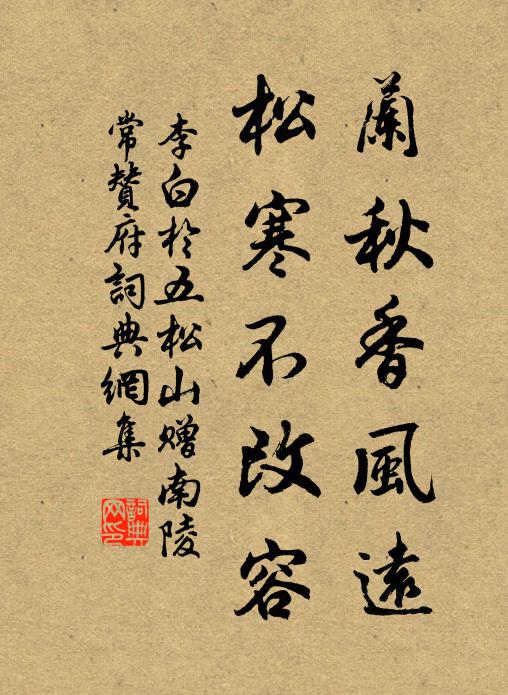 蘭秋香風遠
松寒不改容
李白於五松山贈南陵
常贊府詞典網集
詞典
网印